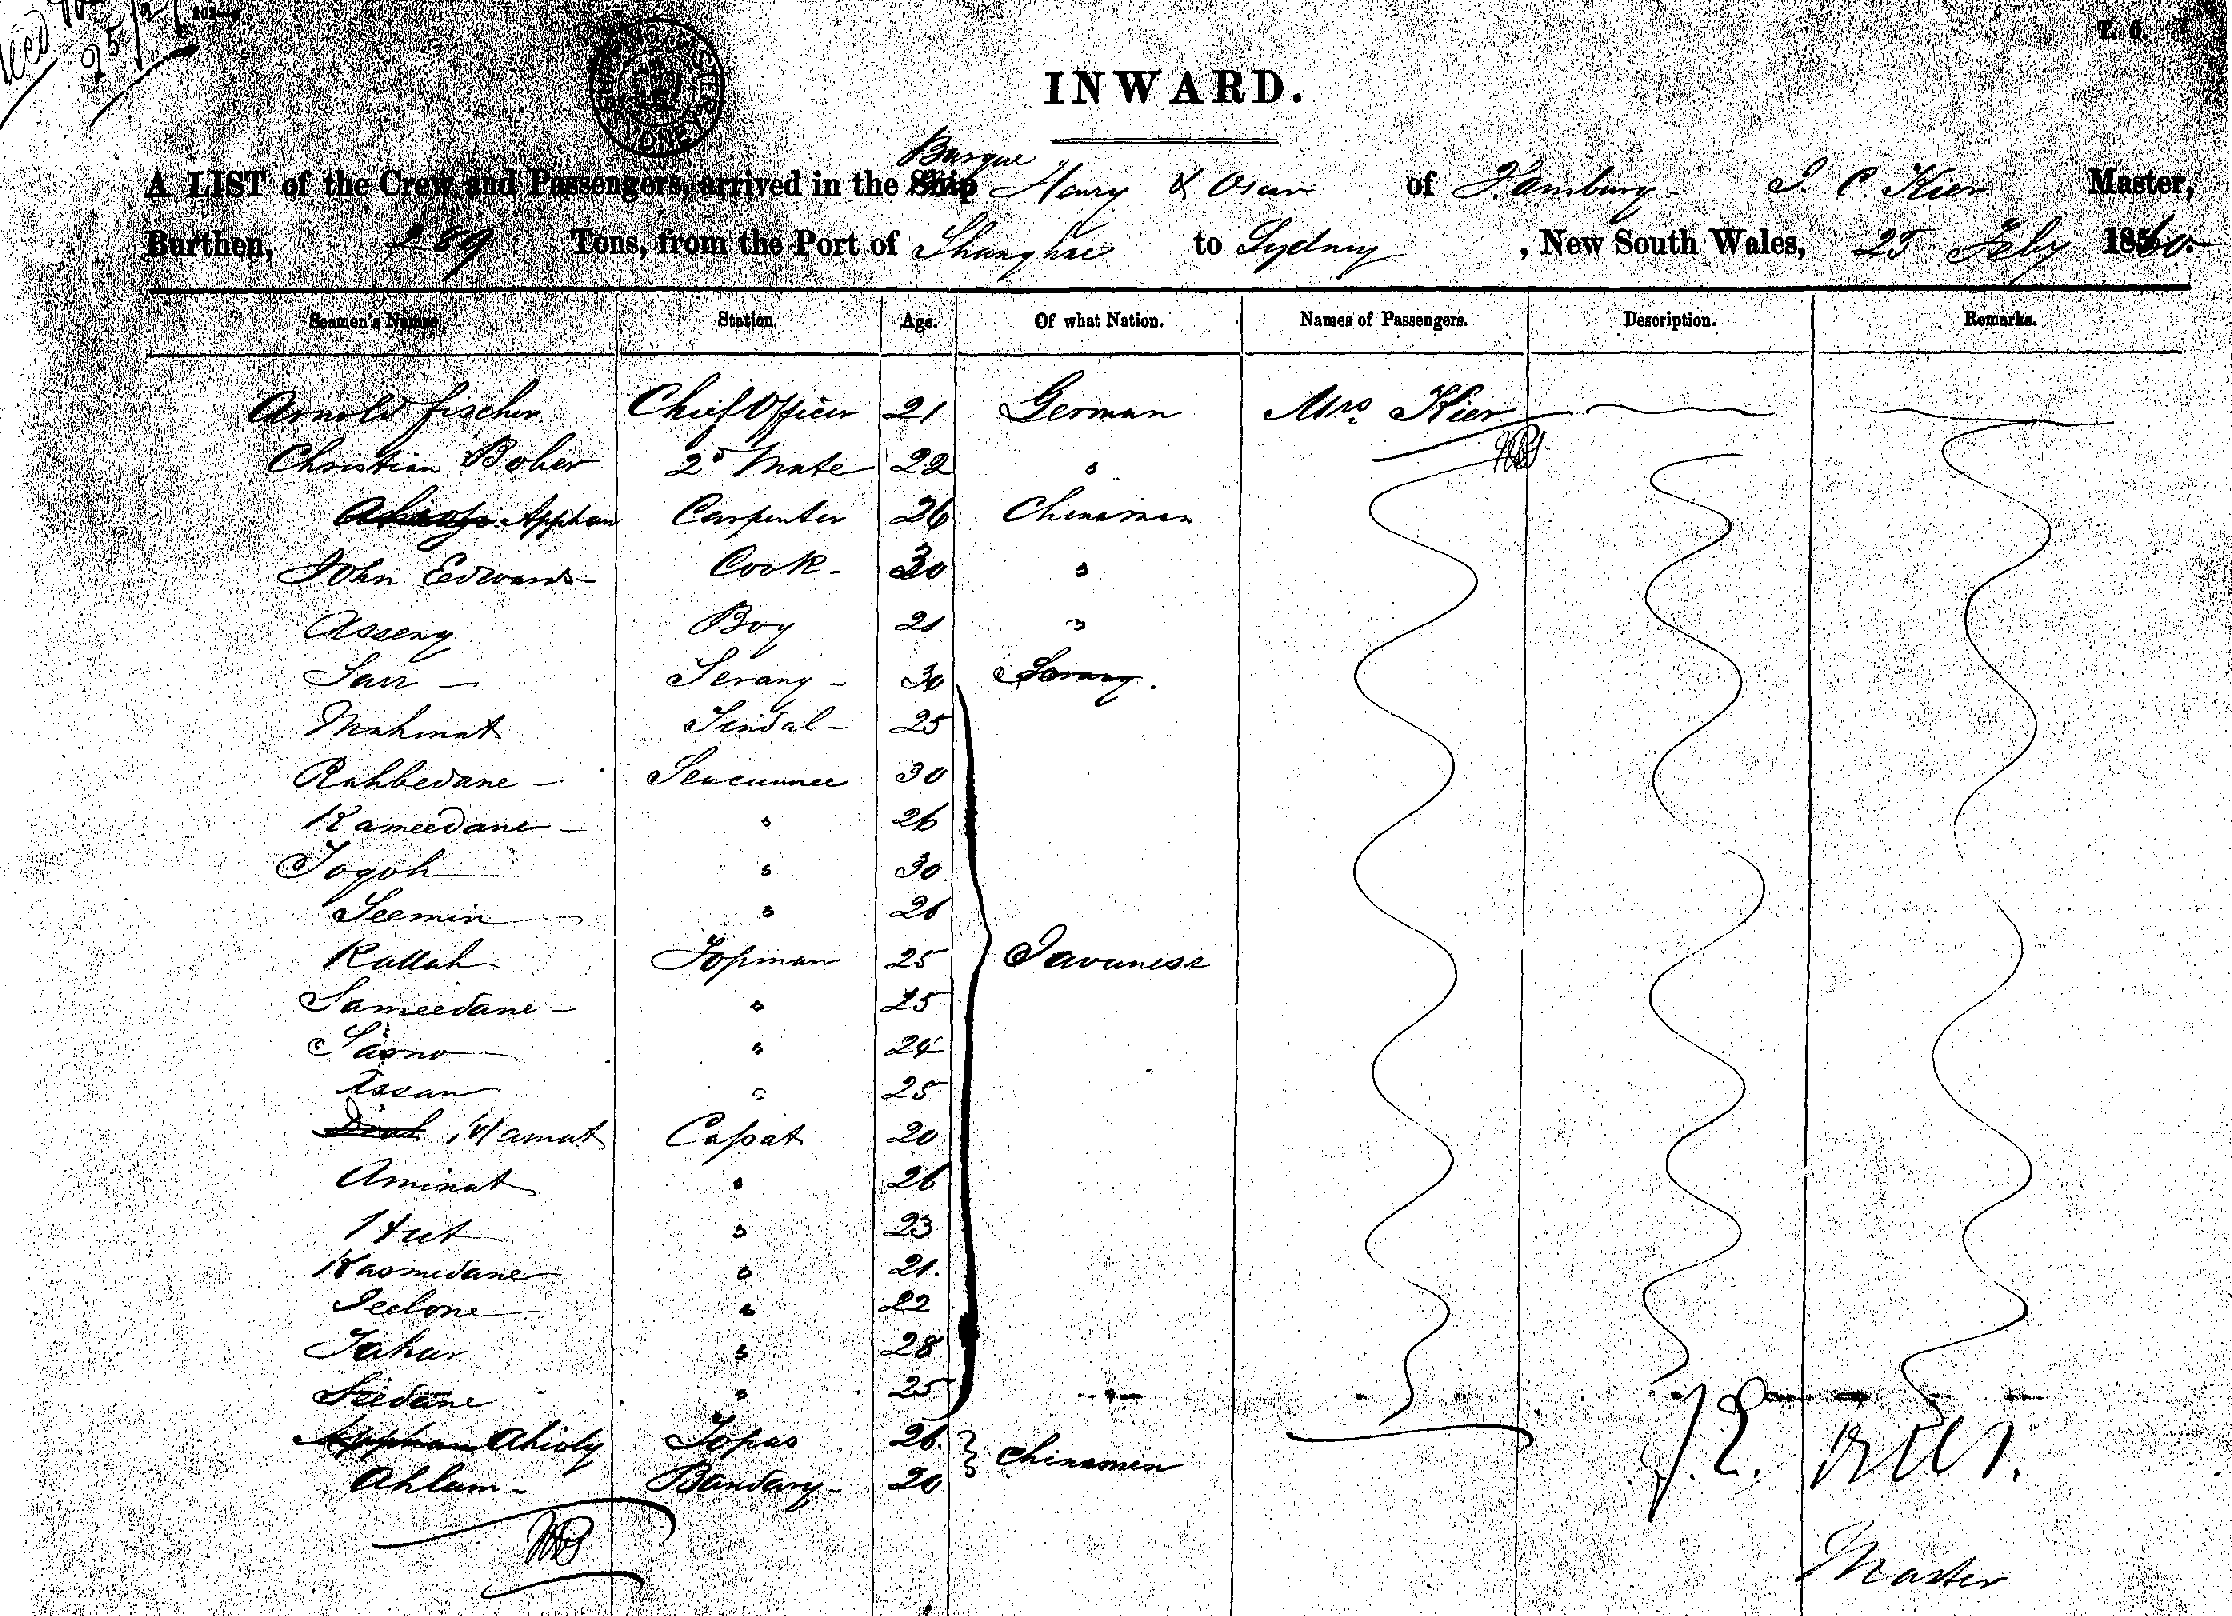 25/2
T. 6.
INWARD.
Barque
A LIST of the Crew and Passengers, arrived in the Ship Henry & Oscar of Hamburg J. C. Kier Master,
Burthen, 289 Tons, from the Port of Shanghae to Sydney, New South Wales, 25 Feby 1860
Seamen's Names Station Age. Of what Nation. Names of Passengers. Description. Remarks.
Arnold Fischer Chief Officer 21 German Mrs Kier
Christian Boher 2d Mate 22 "
Apphan Carpenter 26 Chinaman
John Edwards Cook 30 "
Asseng Boy 21 "
Sarr Serang 30 Serang
Mahmat Tindal 25
Rahbedane Seacunnee 30
Kameedane " 26
Togoh " 30
Seemin " 26
Kallah Topman 25 Javanese
Sameedane " 25
Sasno " 24
Assan " 25
Hamat Casat 20
Aminat " 26
Hut " 23
Kasmedane " 21
Seelone " 22
Jahar " 28
Seedane " 25
Apphan Ahioly Topas 26 Chinamen
Ahlam Bandary 20
Master